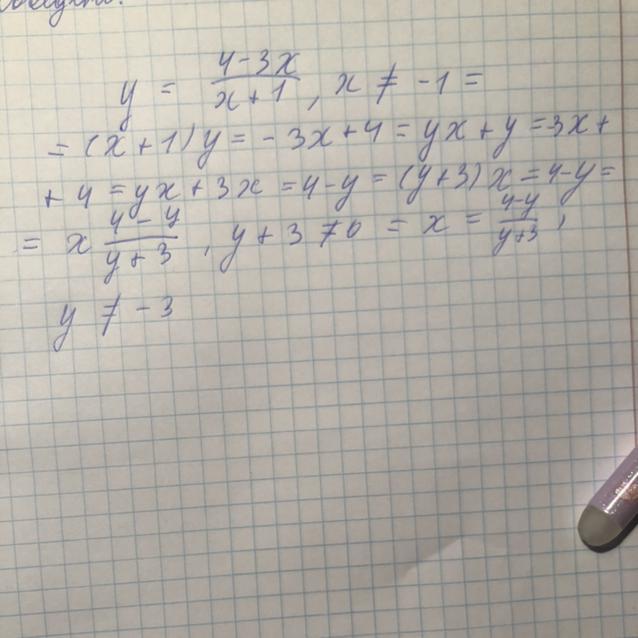 y = 4-3x / x+1, x ≠ -1 =
= (x+1)y = -3x+4 = yx+y = 3x+
+4 = yx+3x = 4-y = (y+3)x = 4-y =
= x 4-y / y+3, y+3 ≠ 0 = x = 4-y / y+3,
y ≠ -3